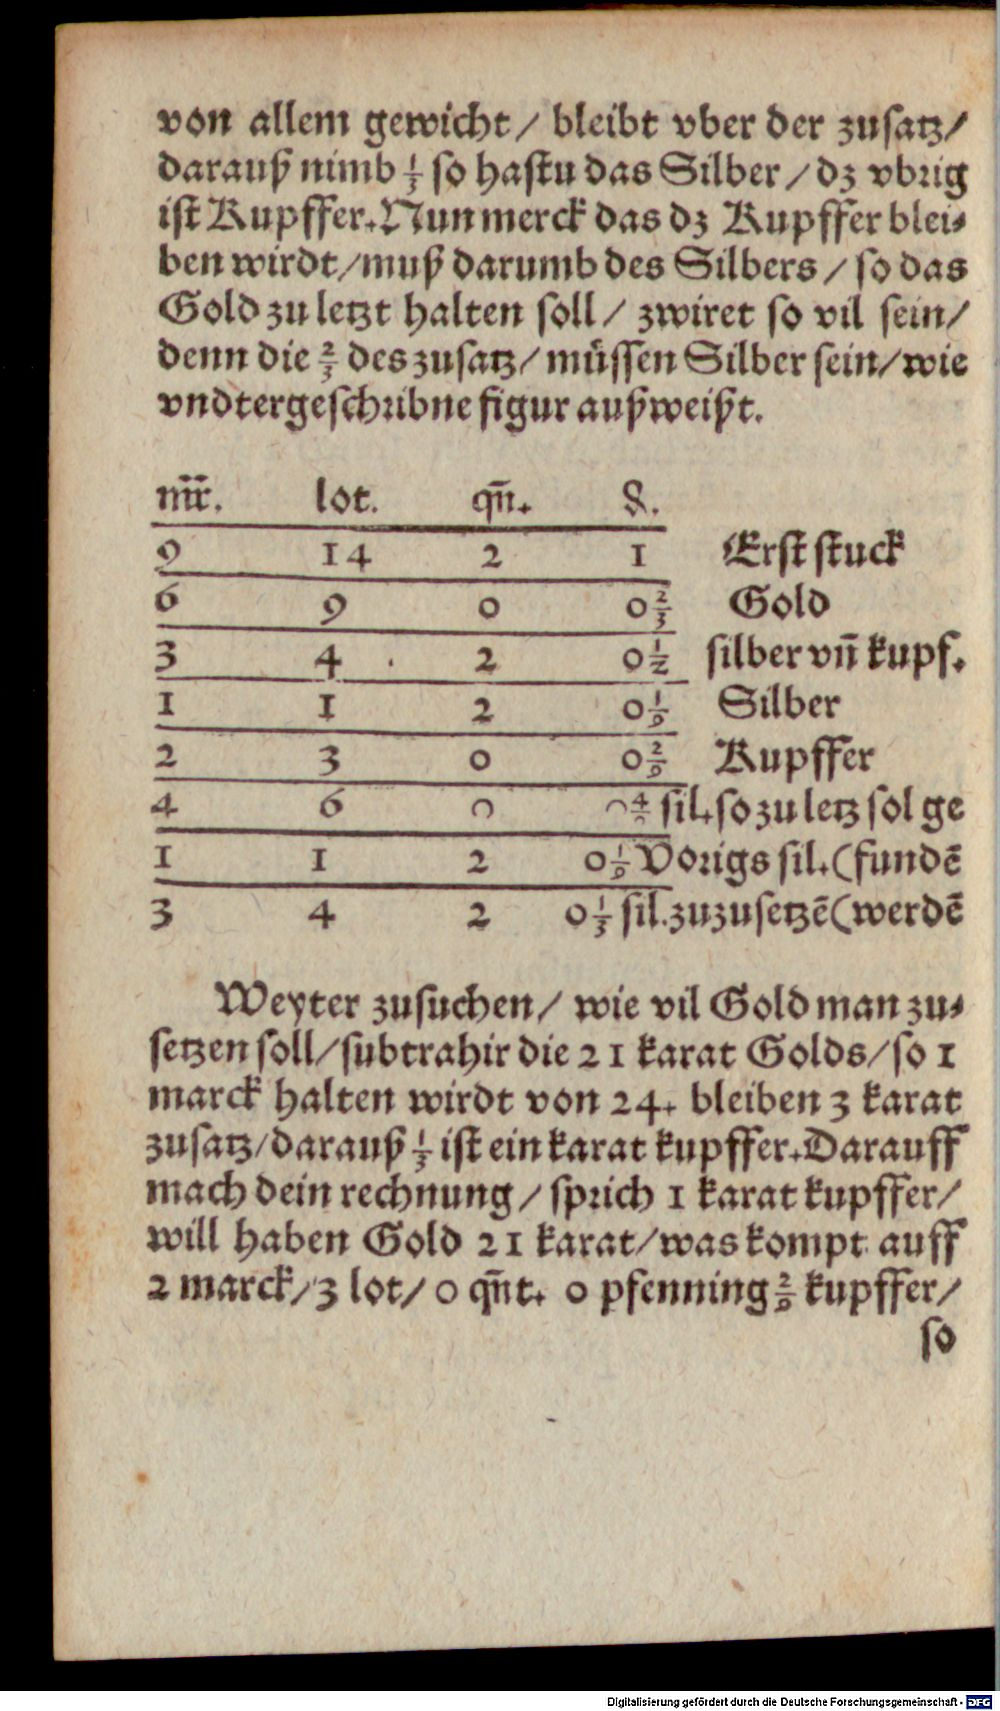 von allem gewicht / bleibt vber der zusatz /
darauß nimb 1/3 so hastu das Silber / dz vbrig
ist Kupffer. Nun merck das dz Kupffer blei-
ben wirdt / muß darumb des Silbers / so das
Gold zu letzt halten soll / zwiret so vil sein /
denn die 2/3 des zusatz / müssen Silber sein / wie
vndtergeschribne figur außweißt.
mr̃. lot. qñ. ₰.
9 14 2 1 Erst stuck
6 9 0 0 2/3 Gold
3 4 2 0 1/2 silber vñ kupf.
1 1 2 0 1/9 Silber
2 3 0 0 2/9 Kupffer
4 6 0 0 4/9 sil. so zu letz sol ge
1 1 2 0 1/9 Vorigs sil. (fundẽ
3 4 2 0 1/3 sil. zuzusetzẽ (werdẽ
Weyter zusuchen / wie vil Gold man zu-
setzen soll / subtrahir die 21 karat Golds / so 1
marck halten wirdt von 24. bleiben 3 karat
zusatz / darauß 1/3 ist ein karat kupffer. Darauff
mach dein rechnung / sprich 1 karat kupffer /
will haben Gold 21 karat / was kompt auff
2 marck / 3 lot / 0 qñt. 0 pfenning 2/9 kupffer /
so
Digitalisierung gefördert durch die Deutsche Forschungsgemeinschaft - DFG